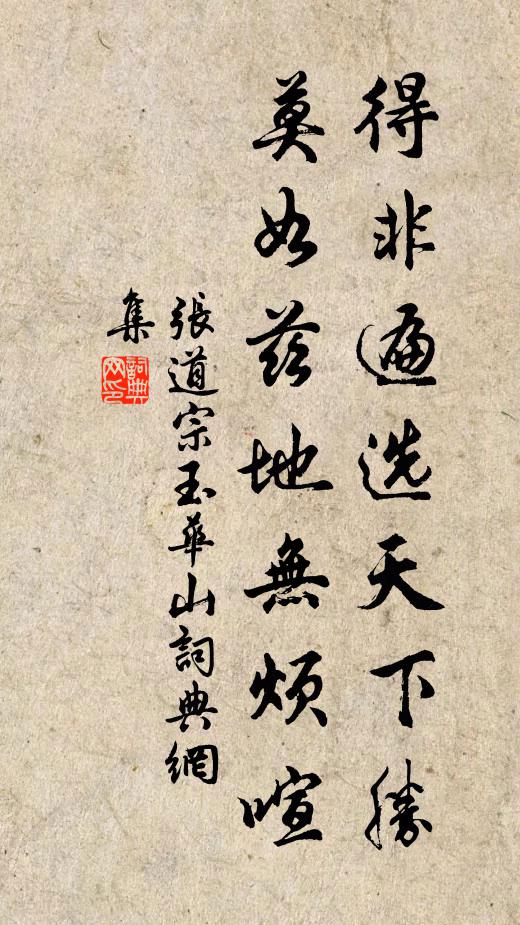 得非遍选天下勝
莫如茲地無煩喧
張道宗玉華山詞典網
集
詞典网印